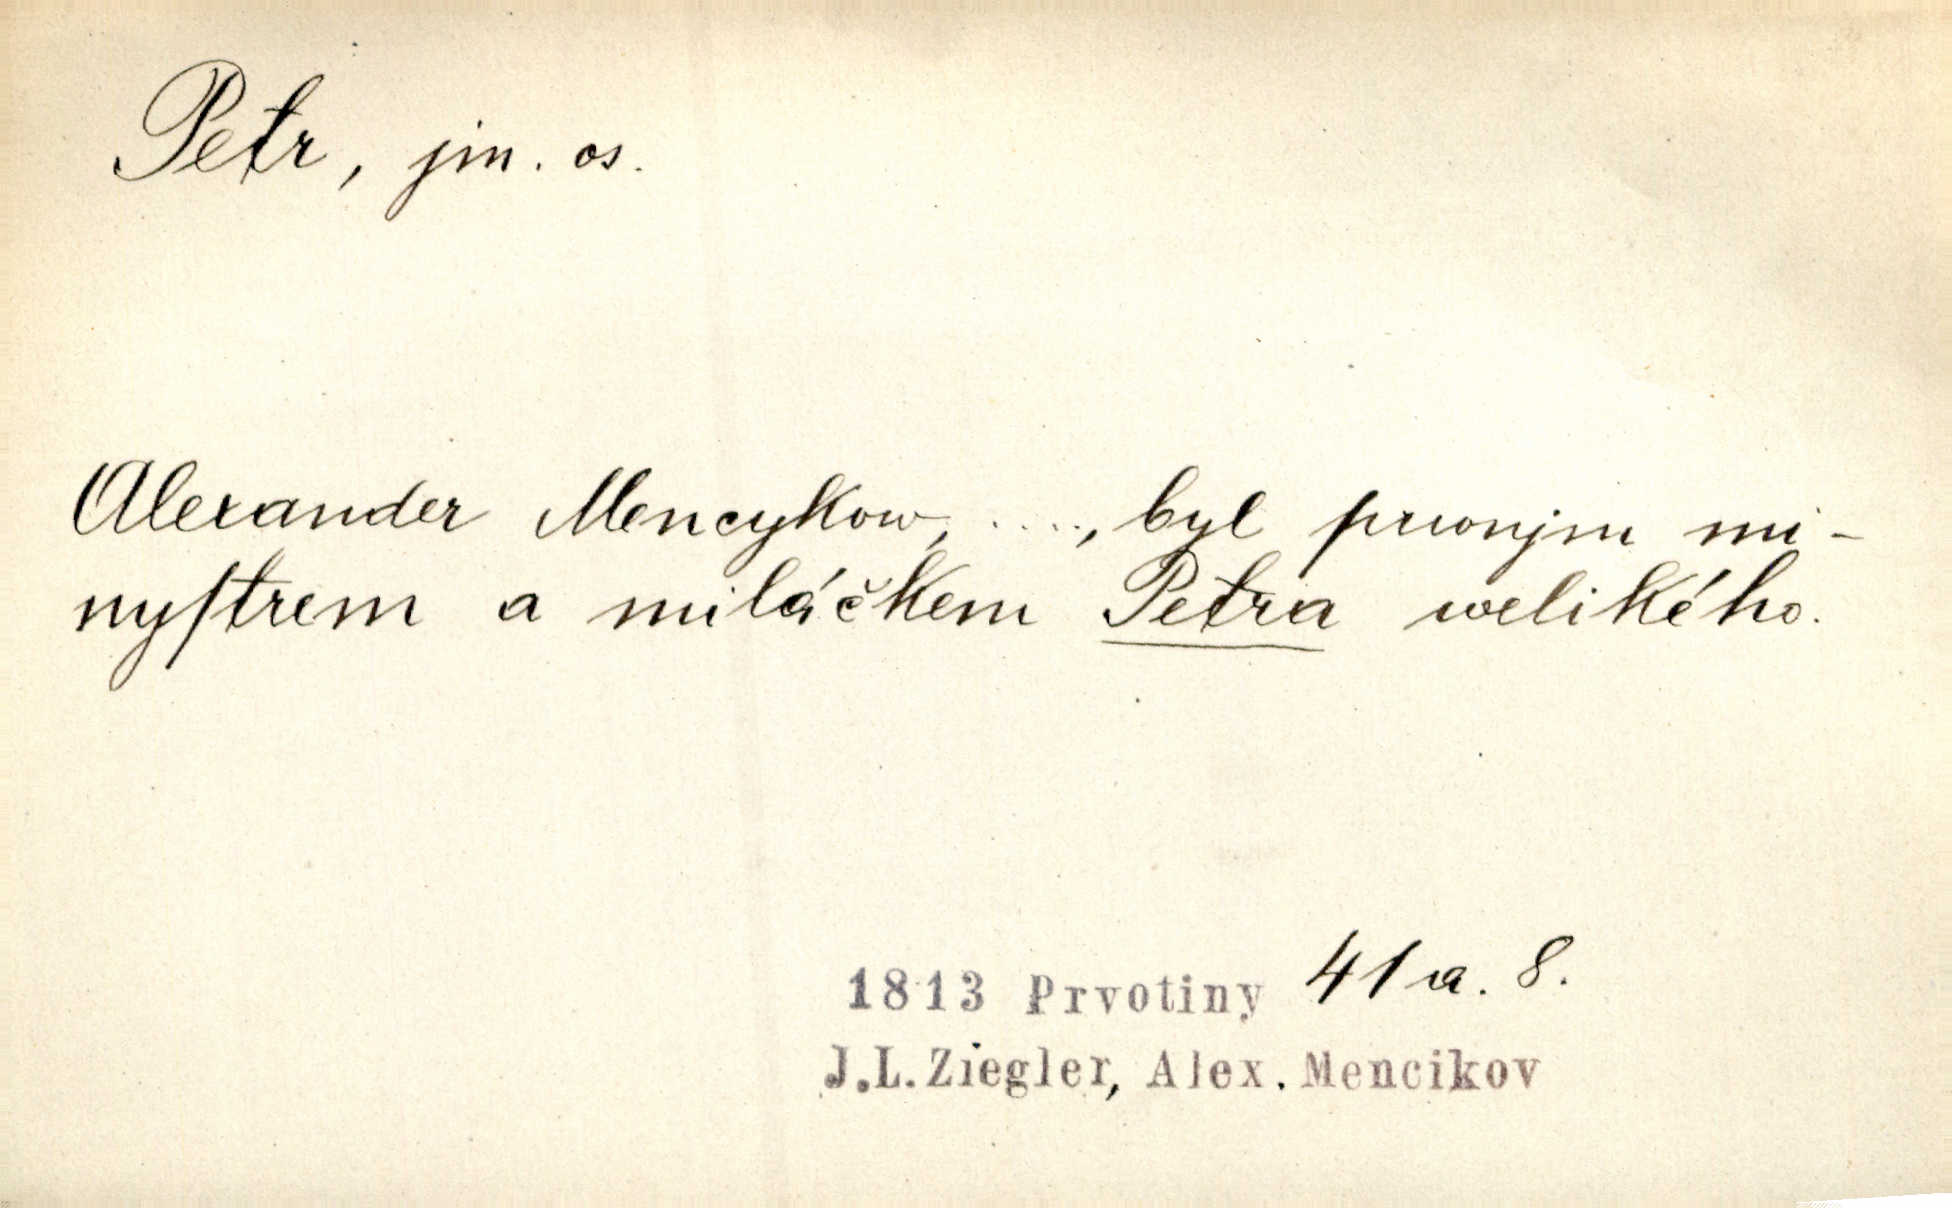 Petr, jm. os.
Alexander Mencykow, ...., byl prwnjm mi-
nyſtrem a miláčkem Petra welikého.
1813 Prvotiny 41a. 8.
J.L.Ziegler, Alex. Mencikov